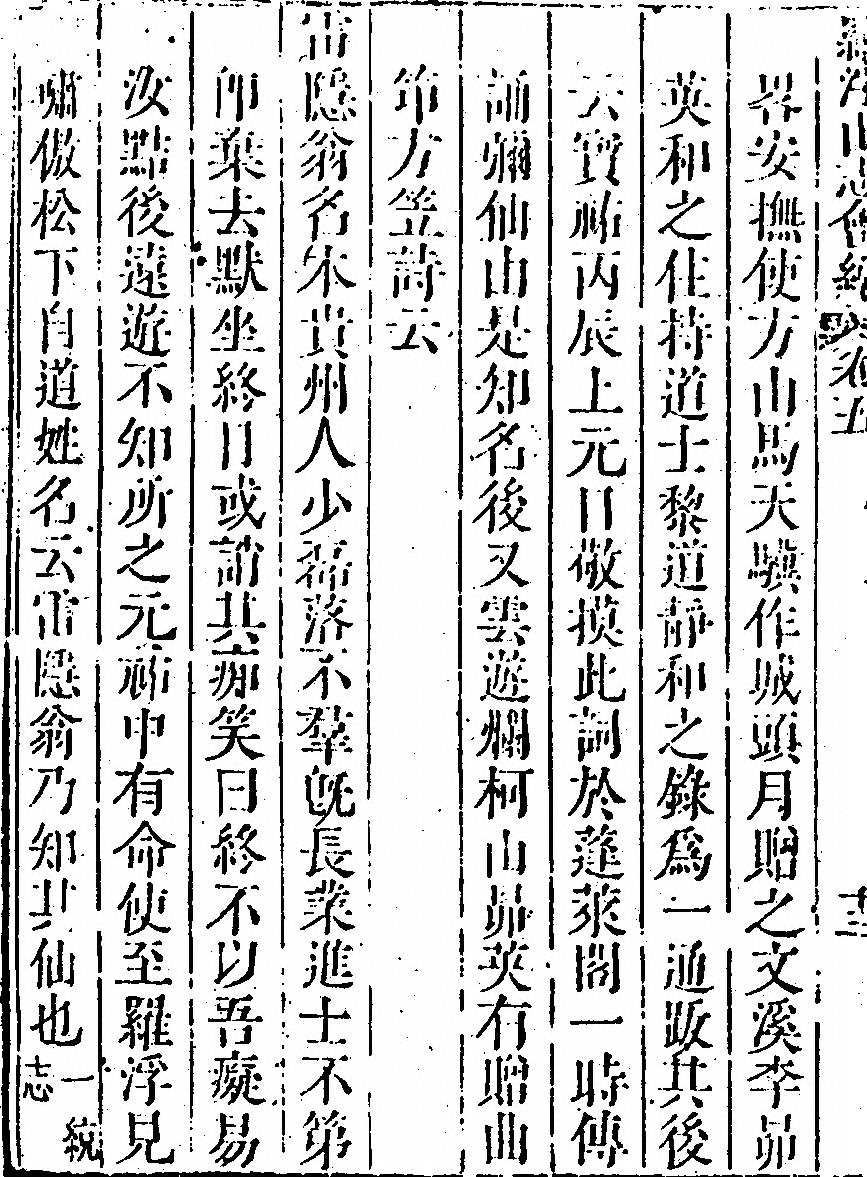 羅浮山志會編 卷五 十三
畧安撫使方山馬天驥作城頭月贈之文溪李昴
英和之住持道士黎道靜和之錄爲一通跋其後
云寶祐丙辰上元日敬摸此詞於蓬萊閣一時傳
誦彌仙山是知名後又雲遊爛柯山昴英有贈曲
笻方笠詩云
雷隱翁名本貴州人少磊落不羣旣長業進士不第
卽棄去默坐終日或誚其痴笑曰終不以吾癡易
汝點後遠遊不知所之元祐中有命使至羅浮見
嘯傲松下自道姓名云雷隱翁乃知其仙也 一統志